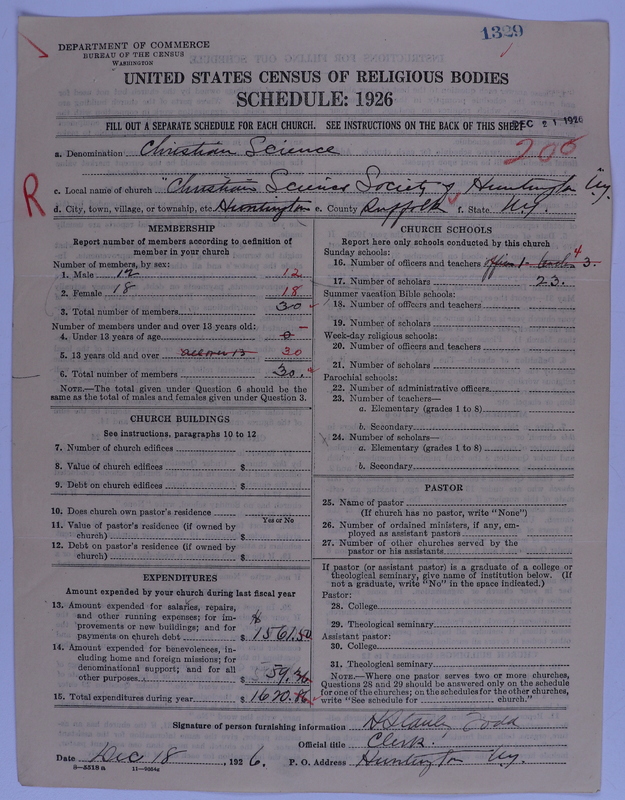 1329
DEPARTMENT OF COMMERCE
BUREAU OF THE CENSUS
WASHINGTON
UNITED STATES CENSUS OF RELIGIOUS BODIES
SCHEDULE: 1926
FILL OUT A SEPARATE SCHEDULE FOR EACH CHURCH. SEE INSTRUCTIONS ON THE BACK OF THIS SHEET
DEC 21 1926
a. Denomination Christian Science
206
R
c. Local name of church "Christian Science Society of Huntington Ny.
d. City, town, village, or township, etc. Huntington e. County Suffolk f. State Ny.
MEMBERSHIP
Report number of members according to definition of
member in your church
Number of members, by sex:
1. Male 12 12
2. Female 18 18
3. Total number of members 30
Number of members under and over 13 years old:
4. Under 13 years of age 0 –
5. 13 years old and over all over 13 30
6. Total number of members 30.
NOTE.—The total given under Question 6 should be the
same as the total of males and females given under Question 3.
CHURCH BUILDINGS
See instructions, paragraphs 10 to 12
7. Number of church edifices
8. Value of church edifices $
9. Debt on church edifices $
10. Does church own pastor's residence
Yes or No
11. Value of pastor's residence (if owned by
church) $
12. Debt on pastor's residence (if owned by
church) $
EXPENDITURES
Amount expended by your church during last fiscal year
13. Amount expended for salaries, repairs,
and other running expenses; for im-
provements or new buildings; and for
payments on church debt $ 1561.50
14. Amount expended for benevolences, in-
cluding home and foreign missions; for
denominational support; and for all
other purposes $ 59.36
15. Total expenditures during year $ 1620.86
CHURCH SCHOOLS
Report here only schools conducted by this church
Sunday schools:
16. Number of officers and teachers officers 1 - teachers 3. 4
17. Number of scholars 23.
Summer vacation Bible schools:
18. Number of officers and teachers
19. Number of scholars
Week-day religious schools:
20. Number of officers and teachers
21. Number of scholars
Parochial schools:
22. Number of administrative officers
23. Number of teachers—
a. Elementary (grades 1 to 8)
b. Secondary
24. Number of scholars—
a. Elementary (grades 1 to 8)
b. Secondary
PASTOR
25. Name of pastor
(If church has no pastor, write "None")
26. Number of ordained ministers, if any, em-
ployed as assistant pastors
27. Number of other churches served by the
pastor or his assistants
If pastor (or assistant pastor) is a graduate of a college or
theological seminary, give name of institution below. (If
not a graduate, write "No" in the space indicated.)
Pastor:
28. College
29. Theological seminary
Assistant pastor:
30. College
31. Theological seminary
NOTE.—Where one pastor serves two or more churches,
Questions 28 and 29 should be answered only on the schedule
for one of the churches; on the schedules for the other churches,
write "See schedule for church."
Signature of person furnishing information H Stanley Todd
Official title Clerk.
Date Dec 18, 1926. P. O. Address Huntington Ny.
8—5518 a 11—9054